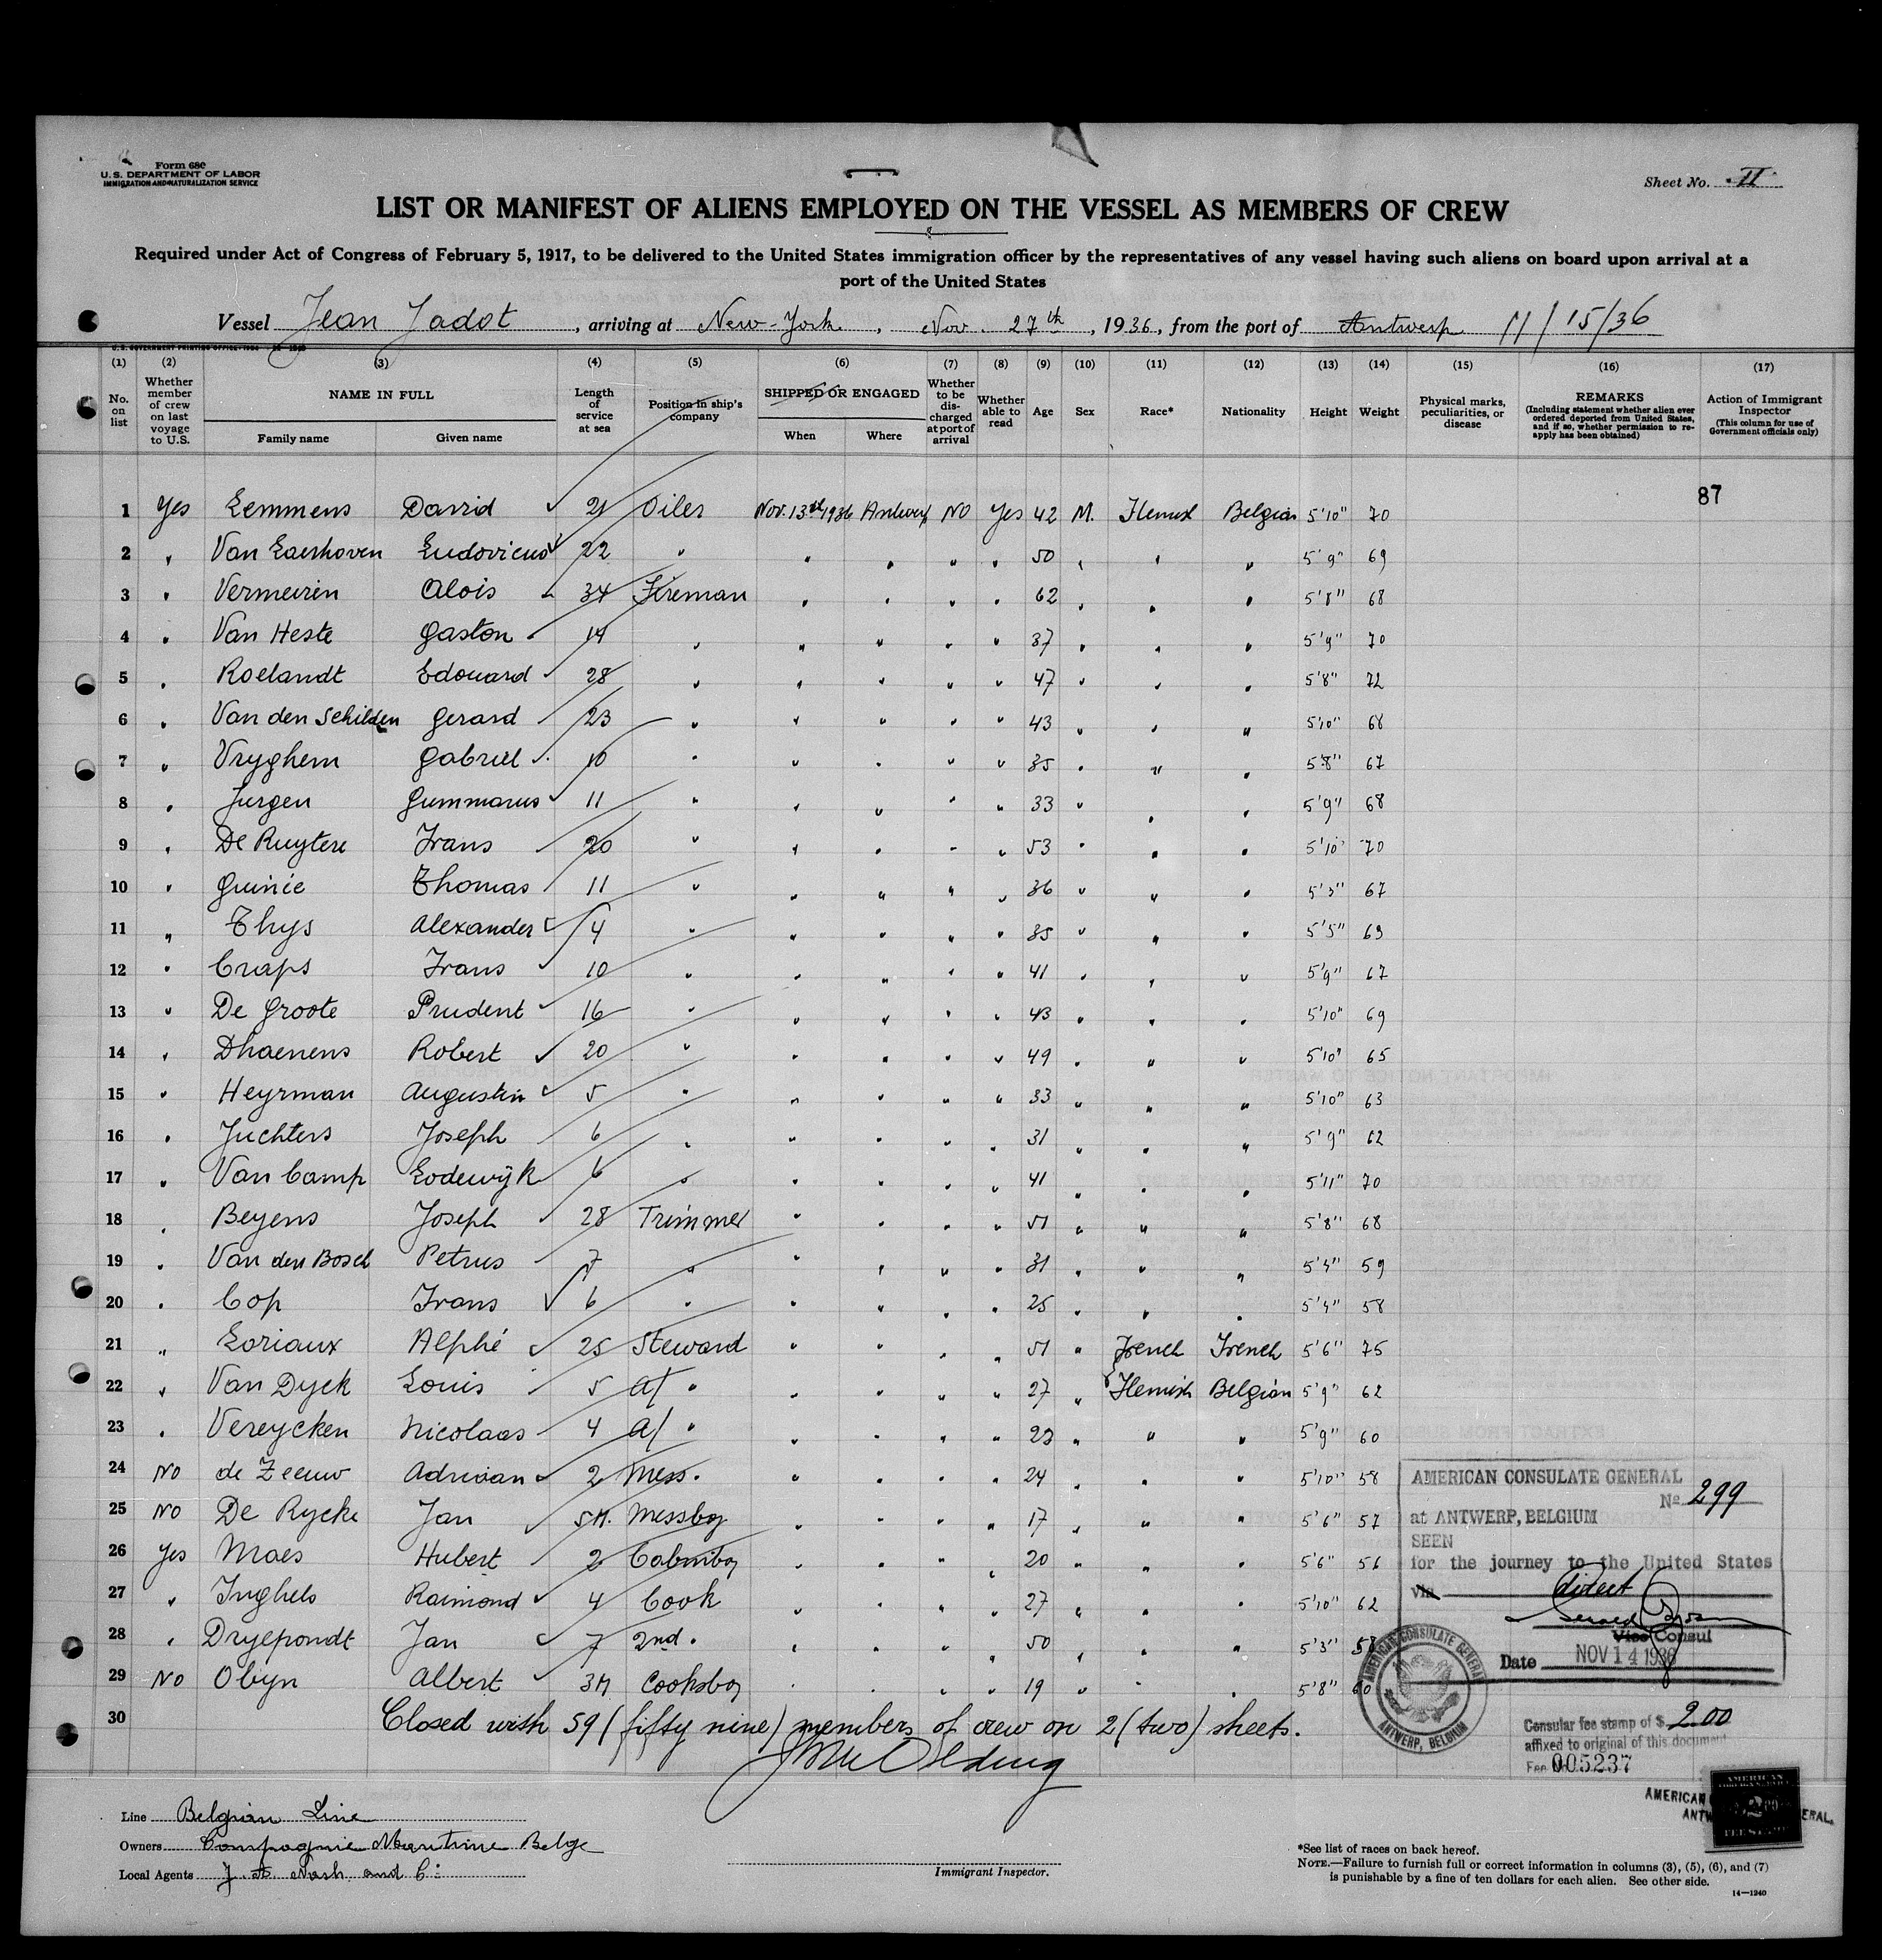 Form 680
U. S. DEPARTMENT OF LABOR
IMMIGRATION AND NATURALIZATION SERVICE
Sheet No. II
LIST OR MANIFEST OF ALIENS EMPLOYED ON THE VESSEL AS MEMBERS OF CREW
Required under Act of Congress of February 5, 1917, to be delivered to the United States immigration officer by the representatives of any vessel having such aliens on board upon arrival at a
port of the United States
Vessel Jean Jadot, arriving at New-York, Nov. 27th, 1936, from the port of Antwerp 11/15/36
(1) (2) (3) (4) (5) (6) (7) (8) (9) (10) (11) (12) (13) (14) (15) (16) (17)
No. on list
Whether member of crew on last voyage to U.S.
NAME IN FULL
Family name Given name
Length of service at sea
Position in ship's company
SHIPPED OR ENGAGED
When Where
Whether to be discharged at port of arrival
Whether able to read
Age Sex Race* Nationality Height Weight
Physical marks, peculiarities, or disease
REMARKS
(Including statement whether alien ever ordered deported from United States, and if so, whether permission to reapply has been obtained)
Action of Immigrant Inspector
(This column for use of Government officials only)
87
1 Yes Lemmens David 21 Oiler Nov. 13th 1936 Antwerp No Yes 42 M. Flemish Belgian 5'10" 70
2 " Van Laerhoven Ludovicus 22 " " " " " 50 " " " 5'9" 69
3 " Vermeiren Alois 34 Fireman " " " " 62 " " " 5'8" 68
4 " Van Heste Gaston 14 " " " " " 37 " " " 5'9" 70
5 " Roelandt Edouard 28 " " " " " 47 " " " 5'8" 72
6 " Van den Schilden Gerard 23 " " " " " 43 " " " 5'10" 68
7 " Vryghem Gabriel 10 " " " " " 35 " " " 5'8" 67
8 " Jurgen Gummarus 11 " " " " " 33 " " " 5'9" 68
9 " De Ruytere Frans 20 " " " " " 53 " " " 5'10" 70
10 " Guinée Thomas 11 " " " " " 36 " " " 5'3" 67
11 " Thys Alexander 4 " " " " " 35 " " " 5'5" 63
12 " Craps Frans 10 " " " " " 41 " " " 5'9" 67
13 " De Groote Prudent 16 " " " " " 43 " " " 5'10" 69
14 " Dhaenens Robert 20 " " " " " 49 " " " 5'10" 65
15 " Heyrman Augustin 5 " " " " " 33 " " " 5'10" 63
16 " Juchters Joseph 6 " " " " " 31 " " " 5'9" 62
17 " Van Camp Lodewijk 6 " " " " " 41 " " " 5'11" 70
18 " Beyens Joseph 28 Trimmer " " " " 51 " " " 5'8" 68
19 " Van den Bosch Petrus 7 " " " " " 31 " " " 5'4" 59
20 " Cop Frans 6 " " " " " 25 " " " 5'4" 58
21 " Loriaux Alphé 25 Steward " " " " 51 " French French 5'6" 75
22 " Van Dyck Louis 5 a/ " " " " " 27 " Flemish Belgian 5'9" 62
23 " Vereycken Nicolaas 4 a/ " " " " " 23 " " " 5'9" 60
24 No de Zeeuw Adriaan 2 Mess. " " " " 24 " " " 5'10" 58
25 No De Rycke Jan 5M. Messboy " " " " 17 " " " 5'6" 57
26 Yes Maes Hubert 2 Cabinboy " " " " 20 " " " 5'6" 56
27 " Inghels Raimond 4 Cook " " " " 27 " " " 5'10" 62
28 " Dryepondt Jan 7 2nd. " " " " 50 " " " 5'3" 58
29 No Obyn Albert 3M Cooksboy " " " " 19 " " " 5'8" 60
30 Closed with 59 (fifty nine) members of crew on 2 (two) sheets.
AMERICAN CONSULATE GENERAL
No 299
at ANTWERP, BELGIUM
SEEN
for the journey to the United States
via direct
Vice Consul
Date NOV 14 1936
AMERICAN CONSULATE GENERAL
ANTWERP, BELGIUM
Consular fee stamp of $ 2.00
affixed to original of this document
Fee 005237
AMERICAN
Line Belgian Line
Owners Compagnie Maritime Belge
Local Agents
Immigrant Inspector.
*See list of races on back hereof.
NOTE.—Failure to furnish full or correct information in columns (3), (5), (6), and (7)
is punishable by a fine of ten dollars for each alien. See other side.
14—1240